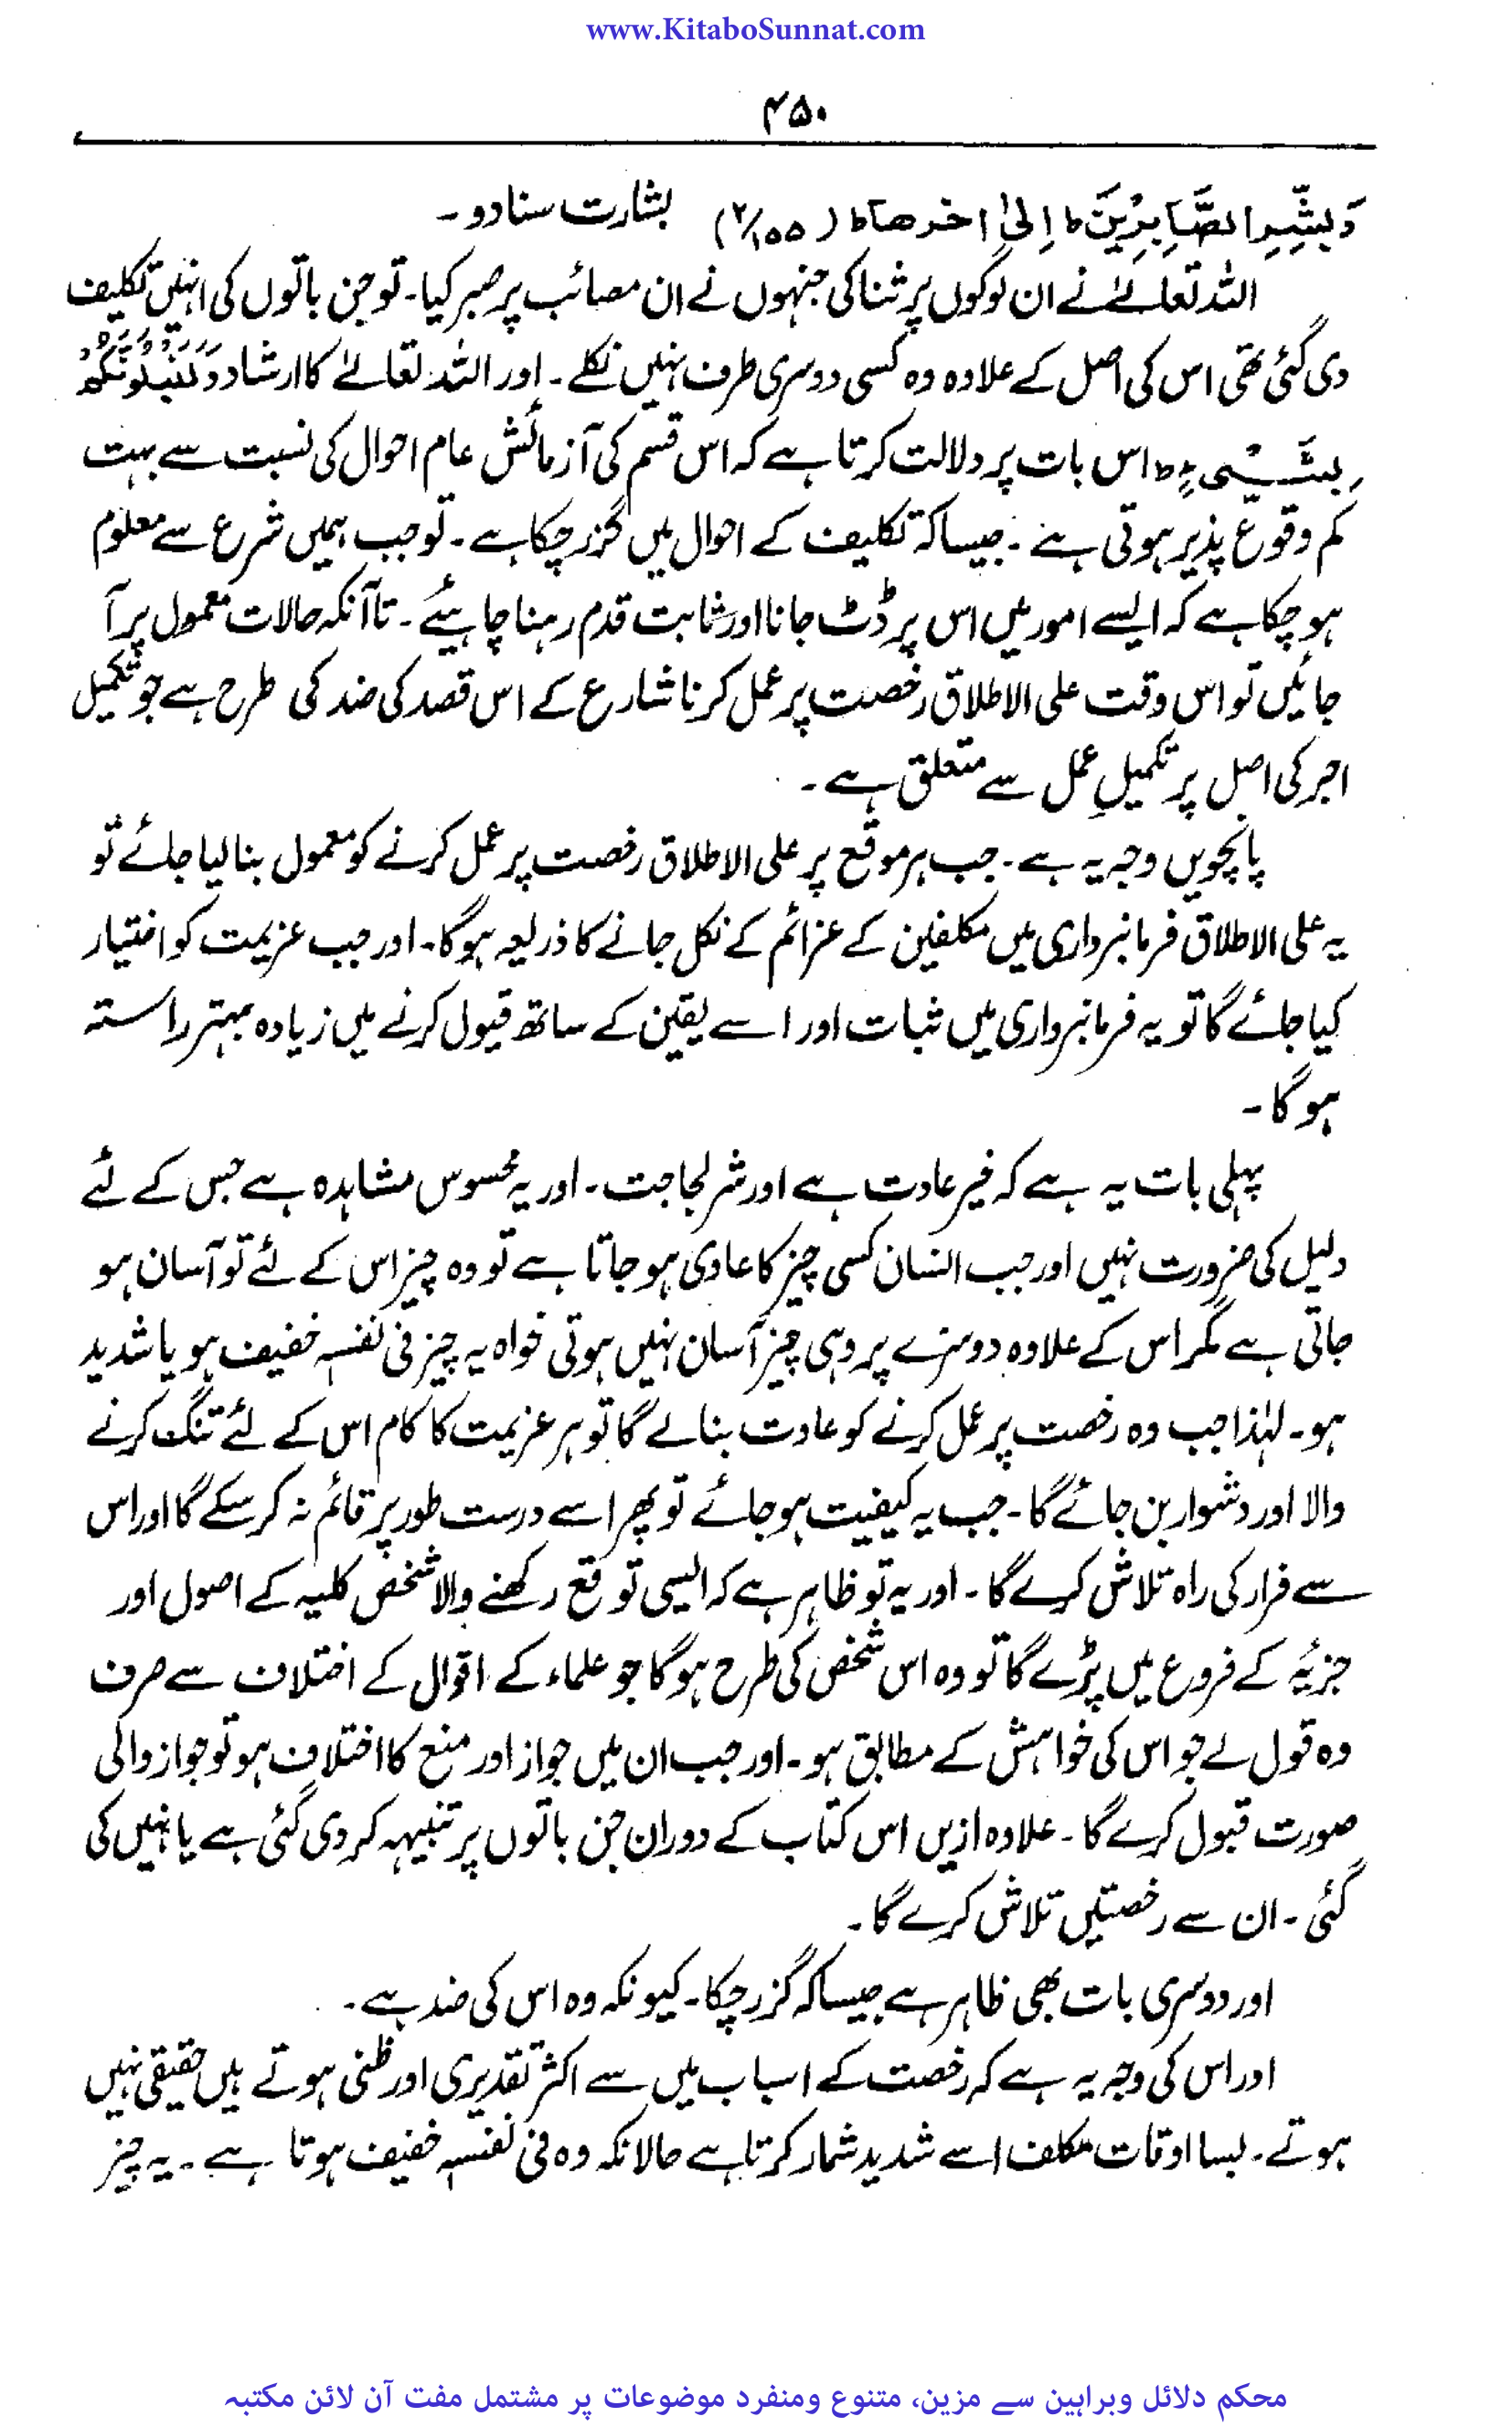 www.KitaboSunnat.com
۴۵۰
وَبَشِّرِ الصَّابِرِیْنَ ط اِلیٰ اٰخرھا ط (۲/۱۵۵) بشارت سنا دو۔
اللہ تعالےٰ نے ان لوگوں پر ثنا کی جنہوں نے ان مصائب پر صبر کیا۔ تو جن باتوں کی انہیں تکلیف
دی گئی تھی اس کی اصل کے علاوہ وہ کسی دوسری طرف نہیں نکلے۔ اور اللہ تعالےٰ کا ارشاد وَلَنَبْلُوَنَّکُمْ
بِشَیْیءٍ ط اس بات پر دلالت کرتا ہے کہ اس قسم کی آزمائش عام احوال کی نسبت سے بہت
کم وقوع پذیر ہوتی ہے۔ جیسا کہ تکلیف کے احوال میں گزر چکا ہے۔ تو جب ہمیں شرع سے معلوم
ہو چکا ہے کہ ایسے امور میں اس پر ڈٹ جانا اور ثابت قدم رہنا چاہیئے۔ تا آنکہ حالات معمول پر آ
جائیں تو اس وقت علی الاطلاق رخصت پر عمل کرنا شارع کے اس قصد کی ضد کی طرح ہے جو تکمیل
اجر کی اصل پر تکمیلِ عمل سے متعلق ہے۔
پانچویں وجہ یہ ہے۔ جب ہر موقع پر علی الاطلاق رخصت پر عمل کرنے کو معمول بنا لیا جائے تو
یہ علی الاطلاق فرمانبرداری میں مکلفین کے عزائم کے نکل جانے کا ذریعہ ہوگا۔ اور جب عزیمت کو اختیار
کیا جائے گا تو یہ فرمانبرداری میں ثبات اور اسے یقین کے ساتھ قبول کرنے میں زیادہ بہتر راستہ
ہوگا۔
پہلی بات یہ ہے کہ خیر عادت ہے اور شر لجاجت۔ اور یہ محسوس مشاہدہ ہے جس کے لئے
دلیل کی ضرورت نہیں اور جب انسان کسی چیز کا عادی ہو جاتا ہے تو وہ چیز اس کے لئے تو آسان ہو
جاتی ہے مگر اس کے علاوہ دوسرے پر وہی چیز آسان نہیں ہوتی خواہ یہ چیز فی نفسہٖ خفیف ہو یا شدید
ہو۔ لہٰذا جب وہ رخصت پر عمل کرنے کو عادت بنا لے گا تو ہر عزیمت کا کام اس کے لئے تنگ کرنے
والا اور دشوار بن جائے گا۔ جب یہ کیفیت ہو جائے تو پھر اسے درست طور پر قائم نہ کر سکے گا اور اس
سے فرار کی راہ تلاش کرے گا۔ اور یہ تو ظاہر ہے کہ ایسی توقع رکھنے والا شخص کلیہ کے اصول اور
جزئیہ کے فروع میں پڑے گا تو وہ اس شخص کی طرح ہوگا جو علماء کے اقوال کے اختلاف سے صرف
وہ قول لے جو اس کی خواہش کے مطابق ہو۔ اور جب ان میں جواز اور منع کا اختلاف ہو تو جواز والی
صورت قبول کرے گا۔ علاوہ ازیں اس کتاب کے دوران جن باتوں پر تنبیہہ کر دی گئی ہے یا نہیں کی
گئی۔ ان سے رخصتیں تلاش کرے گا۔
اور دوسری بات بھی ظاہر ہے جیسا کہ گزر چکا۔ کیونکہ وہ اس کی ضد ہے۔
اور اس کی وجہ یہ ہے کہ رخصت کے اسباب میں سے اکثر تقدیری اور ظنی ہوتے ہیں حقیقی نہیں
ہوتے۔ بسا اوقات مکلف اسے شدید شمار کرتا ہے حالانکہ وہ فی نفسہٖ خفیف ہوتا ہے۔ یہ چیز
محکم دلائل وبراہین سے مزین، متنوع ومنفرد موضوعات پر مشتمل مفت آن لائن مکتبہ